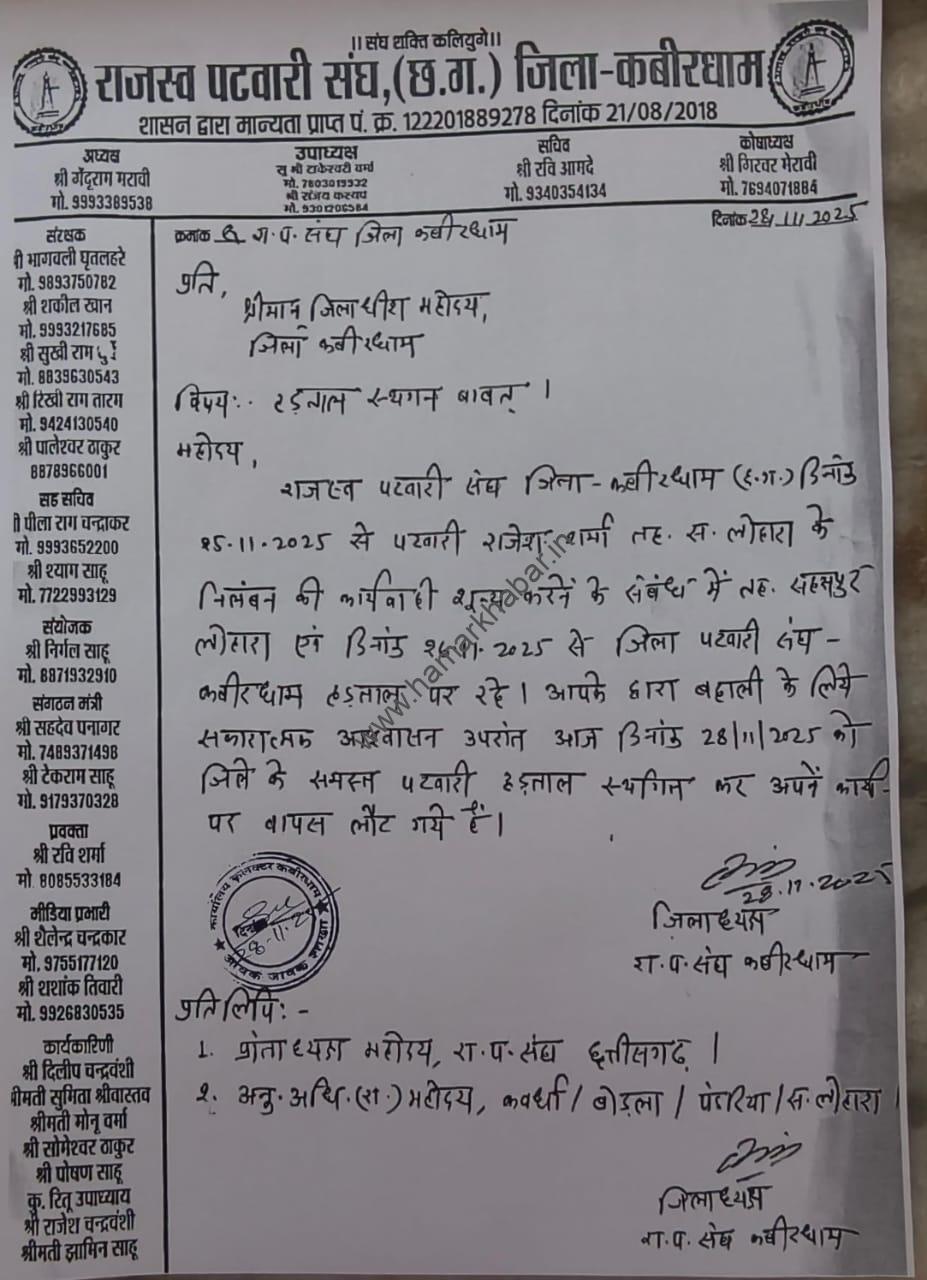 ।। संघ शक्ति कलियुगे।।
राजस्व पटवारी संघ,(छ.ग.) जिला-कबीरधाम
शासन द्वारा मान्यता प्राप्त पं. क्र. 122201889278 दिनांक 21/08/2018
अध्यक्ष
श्री गेंदराम मरावी
मो. 9993389538
उपाध्यक्ष
सु श्री टाकेश्वरी वर्मा
मो. 7803019932
श्री संजय कश्यप
मो. 9301206584
सचिव
श्री रवि आमदे
मो. 9340354134
कोषाध्यक्ष
श्री गिरवर मेरावी
मो. 7694071884
संरक्षक
श्री भागवली घृतलहरे
मो. 9893750782
श्री शकील खान
मो. 9993217685
श्री सुखी राम
मो. 8839630543
श्री रिखी राग तारग
मो. 9424130540
श्री पालेश्वर ठाकुर
8878966001
सह सचिव
श्री पीला राग चन्द्राकर
मो. 9993652200
श्री श्याग साहू
मो. 7722993129
संयोजक
श्री निर्गल साहू
मो. 8871932910
संगठन मंत्री
श्री सहदेव पनागर
मो. 7489371498
श्री टेकराम साहू
मो. 9179370328
प्रवक्ता
श्री रवि शर्मा
मो 8085533184
मीडिया प्रभारी
श्री शैलेन्द्र चन्द्रकार
मो. 9755177120
श्री शशांक तिवारी
मो. 9926830535
कार्यकारिणी
श्री दिलीप चन्द्रवंशी
श्रीमती सुमिता श्रीवास्तव
श्रीमती मोनू वर्मा
श्री सोमेश्वर ठाकुर
श्री पोषण साहू
कु. रितू उपाध्याय
श्री राजेश चन्द्रवंशी
श्रीमती झामिन साहू
दिनांक 28/11/2025
क्रमांक रा.प. संघ जिला कबीरधाम
प्रति,
श्रीमान् जिलाधीश महोदय,
जिला कबीरधाम
विषय:- हड़ताल स्थगन बावत् ।
महोदय,
राजस्व पटवारी संघ जिला-कबीरधाम (छ.ग.) दिनांक
25.11.2025 से पटवारी राजेश शर्मा तह. स. लोहारा के
निलंबन की कार्यवाही शून्य करने के संबंध में तह. सहसपुर
लोहारा एवं दिनांक 26.11.2025 से जिला पटवारी संघ-
कबीरधाम हड़ताल पर रहे। आपके द्वारा बहाली के लिये
सकारात्मक आश्वासन उपरांत आज दिनांक 28/11/2025 को
जिले के समस्त पटवारी हड़ताल स्थगित कर अपने कार्य-
पर वापस लौट गये हैं।
कार्यालय कलेक्टर कबीरधाम
दिनांक
28.11.25
आवक जावक शाखा
28.11.2025
जिलाध्यक्ष
रा.प. संघ कबीरधाम
प्रतिलिपि:-
1. प्रांताध्यक्ष महोदय, रा.प. संघ छत्तीसगढ़ ।
2. अनु.अधि.(रा.) महोदय, कवर्धा / बोड़ला / पंडरिया / स. लोहारा।
जिलाध्यक्ष
रा.प. संघ कबीरधाम
www.hamarkhabar.in